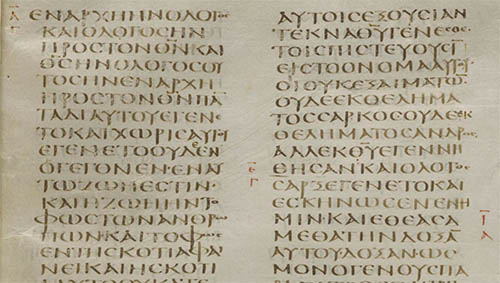 ΕΝΑΡΧΗΗΝΟΛΟΓΟϹ
ΚΑΙΟΛΟΓΟϹΗΝ
ΠΡΟϹΤΟΝΘ̅Ν̅ΚΑΙ
Θ̅Ϲ̅ΗΝΟΛΟΓΟϹΟΥ
ΤΟϹΗΝΕΝΑΡΧΗ
ΠΡΟϹΤΟΝΘ̅Ν̅ΠΑ
ΤΑΔΙΑΥΤΟΥΕΓΕΝΕ
ΤΟΚΑΙΧΩΡΙϹΑΥΤΟΥ
ΕΓΕΝΕΤΟΟΥΔΕΝ
ΟΓΕΓΟΝΕΝΕΝΑΥ
ΤΩΖΩΗΕϹΤΙΝ
ΚΑΙΗΖΩΗΗΝΤΟ
ΦΩϹΤΩΝΑΝΘΡΩ
ΠΩΝΚΑΙΤΟΦΩϹ
ΕΝΤΗϹΚΟΤΙΑΦΑΙ
ΝΕΙΚΑΙΗϹΚΟΤΙ
ΑΥΤΟΙϹΕΞΟΥϹΙΑΝ
ΤΕΚΝΑΘ̅Υ̅ΓΕΝΕϹΘΕ
ΤΟΙϹΠΙϹΤΕΥΟΥϹΙ
ΕΙϹΤΟΟΝΟΜΑΑΥΤΟΥ
ΟΙΟΥΚΕΞΑΙΜΑΤΩ
ΟΥΔΕΕΚΘΕΛΗΜΑ
ΤΟϹϹΑΡΚΟϹΟΥΔΕΕΚ
ΘΕΛΗΜΑΤΟϹΑΝΔΡΟϹ
ΑΛΛΕΚΘ̅Υ̅ΕΓΕΝΝΗ
ΘΗϹΑΝΚΑΙΟΛΟΓΟϹ
ϹΑΡΞΕΓΕΝΕΤΟΚΑΙ
ΕϹΚΗΝΩϹΕΝΕΝΗ
ΜΙΝΚΑΙΕΘΕΑϹΑ
ΜΕΘΑΤΗΝΔΟΞΑ
ΑΥΤΟΥΔΟΞΑΝΩϹ
ΜΟΝΟΓΕΝΟΥϹΠΑ